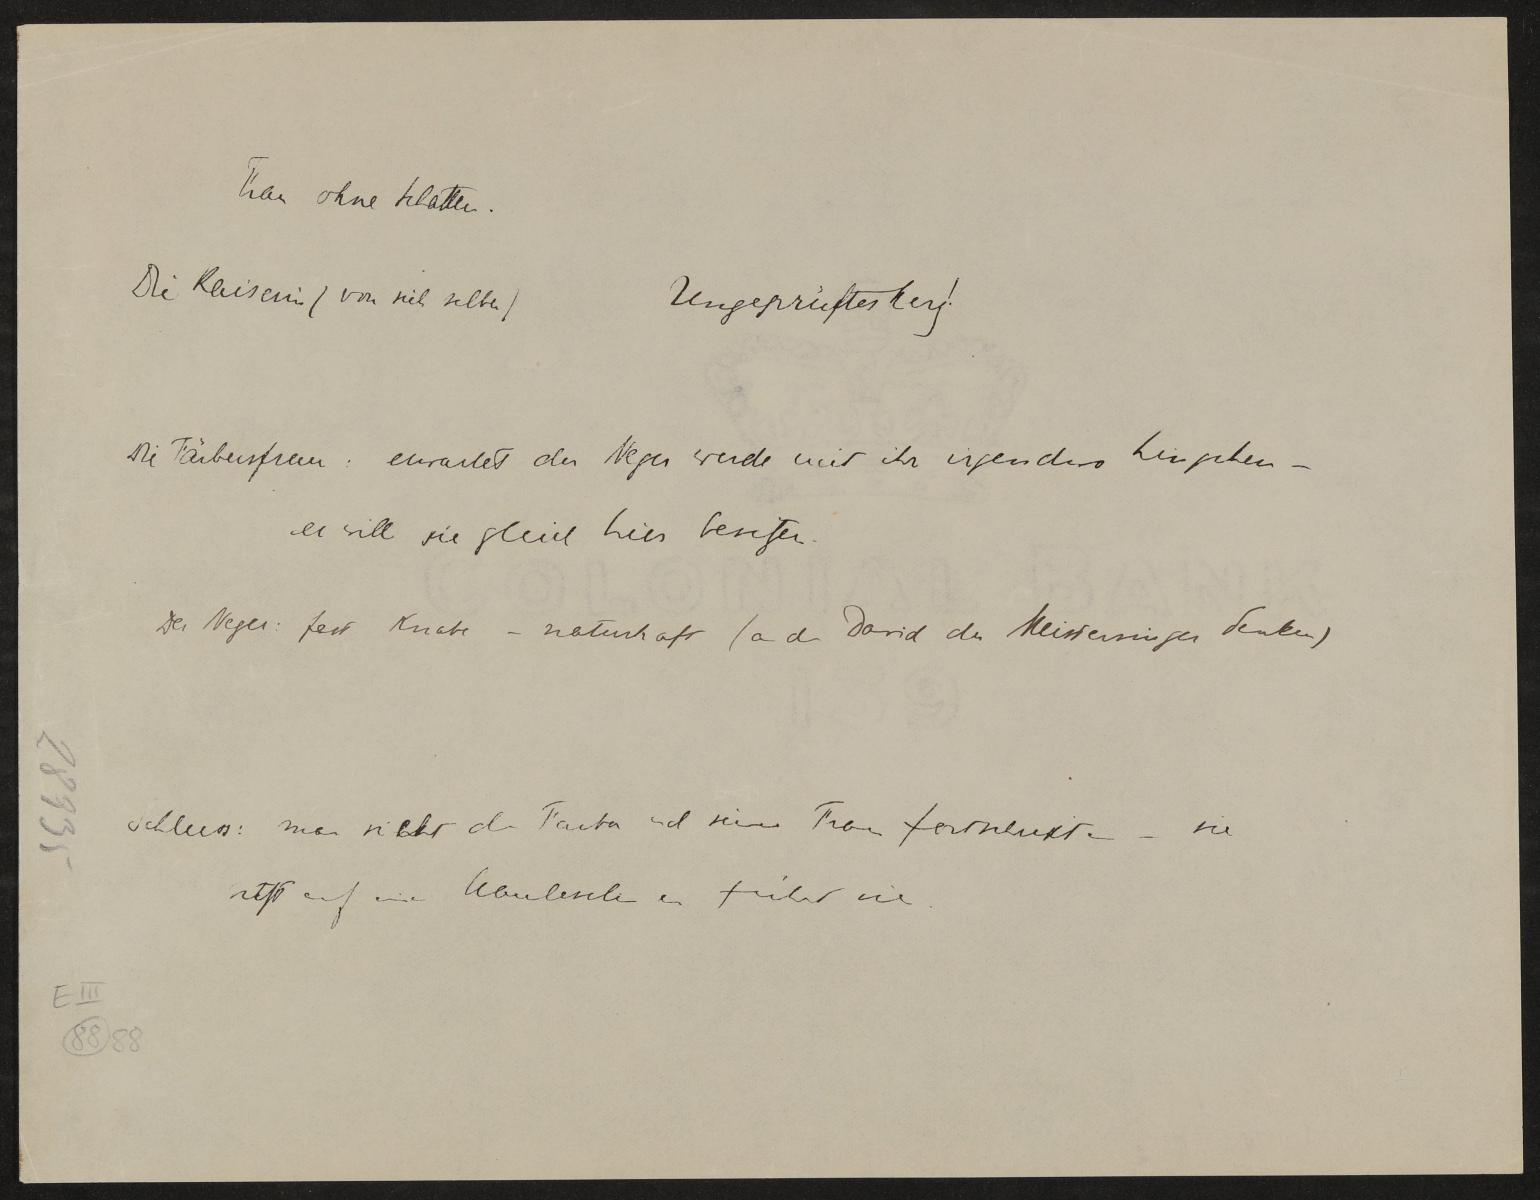 Frau ohne Schatten.
Die Kaiserin (von sich selber) Ungeprüftes Herz!
Die Färbersfrau: erwartet der Neger werde mit ihr irgendwo hingehen –
er will sie gleich hier besitzen.
Der Neger: fast Knabe – naturhaft (an den David der Meistersinger denken)
Schluss: man sieht den Färber und seine Frau fortschreiten – sie
sitzt auf einem Maulesel er führt sie.
COLONIAL BANK
28935
E III
88 88